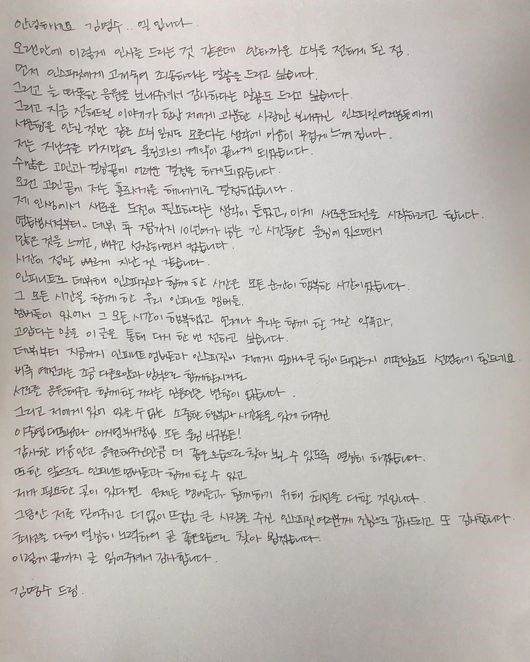 안녕하세요 김명수.. 엘 입니다.
오랜만에 이렇게 인사를 드리는 것 같은데 안타까운 소식을 전하게 된 점.
먼저 인스피릿에게 고개숙여 죄송하다는 말씀을 드리고 싶습니다.
그리고 늘 따뜻한 응원을 보내주셔서 감사하다는 말씀도 드리고 싶습니다.
그리고 지금 전해드릴 이야기가 항상 저에게 과분한 사랑만 보내주신 인스피릿 여러분들에게
서운함을 안길 것만 같은 소식 일지도 모른다는 생각에 마음이 무겁게 느껴집니다.
저는 지난주를 마지막으로 울림과의 계약이 끝나게 되었습니다.
수많은 고민과 결정끝에 어려운 결정을 하게되었습니다.
오랜 고민끝에 저는 홀로서기를 해나가기로 결정했습니다.
제 인생에서 새로운 도전이 필요하다는 생각이 들었고, 이제 새로운도전을 시작하려고 합니다.
연습생시절부터.. 데뷔 후 지금까지 10년여가 넘는 긴 시간동안 울림에 있으면서
많은 것을 느끼고, 배우고 성장하면서 컸습니다.
시간이 정말 빠르게 지난 것 같습니다.
인피니트로 데뷔해 인스피릿과 함께 한 시간은 모든 순간이 행복한 시간이었습니다.
그 모든 시간을 함께 한 우리 인피니트 멤버들.
멤버들이 있어서 그 모든 시간이 행복했고 언제나 우리는 함께 할 거란 약속과,
고맙다는 말을 이 글을 통해 다시 한 번 전하고 싶습니다.
데뷔부터 지금까지 인피니트 멤버들과 인스피릿이 저에게 얼마나 큰 힘이 되었는지 어떤말로도 설명하기 힘드네요.
비록 예전과는 조금 다른모습과 방식으로 함께할지라도
서로를 응원해주고 함께할 거라는 믿음만은 변함이 없습니다.
그리고 저에게 있어 잊을 수 없는 소중한 행복과 시간들을 있게 해주신
이중엽대표님과 이사님, 부장님, 모든 울림 식구분들!
감사한 마음안고 응원해주신만큼 더 좋은 모습으로 찾아 뵐 수 있도록 열심히 하겠습니다.
또한 앞으로도 인피니트 멤버들과 함께 할 수 있고
제가 필요한 곳이 있다면 언제든 멤버들과 함께하기 위해 최선을 다할 것입니다.
그동안 저를 믿어주시고 더 없이 뜨겁고 큰 사랑을 주신 인스피릿 여러분께 진심으로 감사드리고 또 감사합니다.
최선을 다해 열심히 노력하여 곧 좋은모습으로 찾아 뵙겠습니다.
이렇게 끝까지 글 읽어주셔서 감사합니다.
김명수 드림.